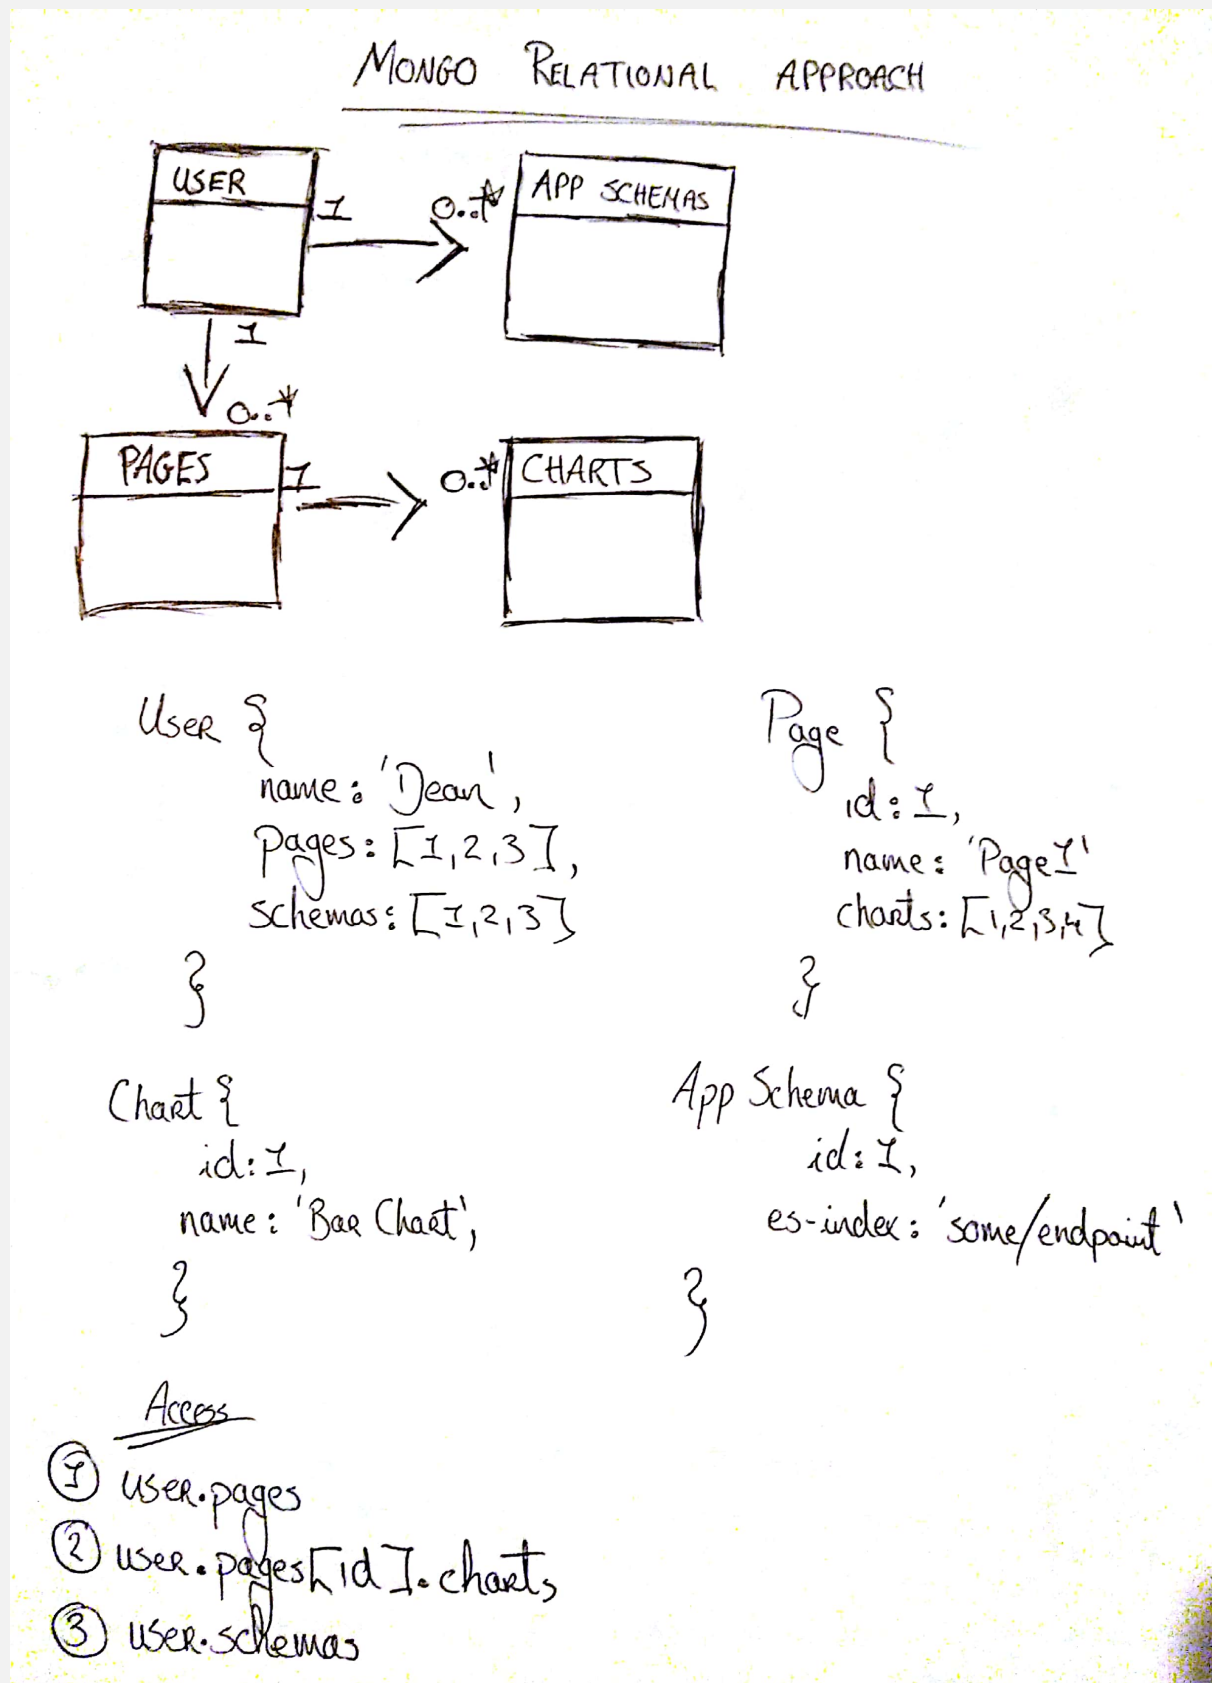 MONGO RELATIONAL APPROACH
USER
1
0..*
APP SCHEMAS
1
0..*
PAGES
1
0..*
CHARTS
User {
name: 'Dean',
pages: [1,2,3],
schemas: [1,2,3]
}
Page {
id: 1,
name: 'Page1'
charts: [1,2,3,4]
}
Chart {
id: 1,
name: 'Bar Chart',
}
App Schema {
id: 1,
es-index: 'some/endpoint'
}
Access
1 user.pages
2 user.pages[id].charts
3 user.schemas